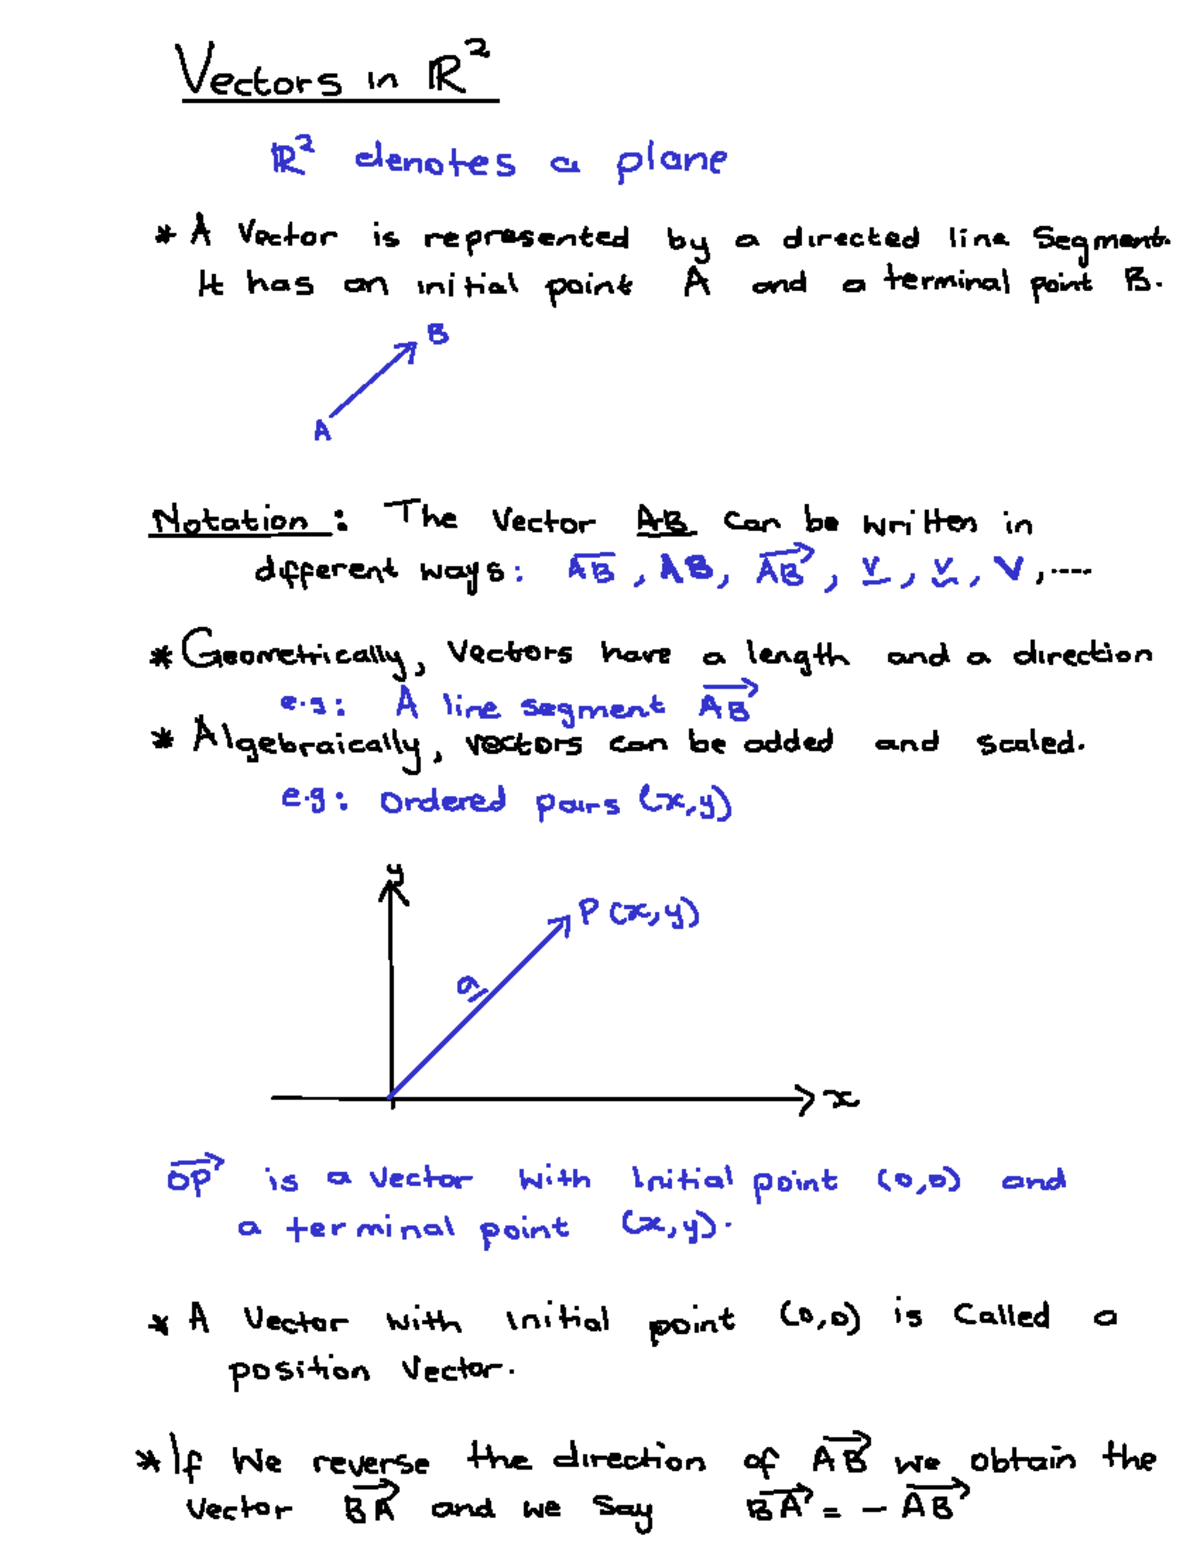 Vectors in ℝ²
ℝ² denotes a plane
* A Vector is represented by a directed line Segment.
It has an initial point A and a terminal point B.
B
A
Notation : The Vector A̲B̲ can be written in
different ways: A̅B̅ , AB, AB⃗ , v̲ , v̰ , V , ....
* Geometrically, Vectors have a length and a direction
e.g: A line segment AB⃗
* Algebraically, vectors can be added and scaled.
e.g: Ordered pairs (x,y)
y
P (x,y)
a̲
x
OP⃗ is a vector with Initial point (0,0) and
a terminal point (x,y).
* A Vector with initial point (0,0) is Called a
position Vector.
* If We reverse the direction of AB⃗ we obtain the
Vector BA⃗ and we Say BA⃗ = - AB⃗